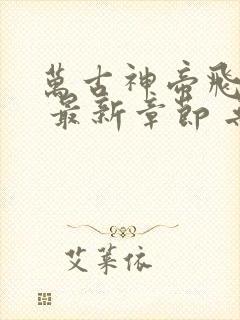 萬古神帝飛
最新章節
艾萊依